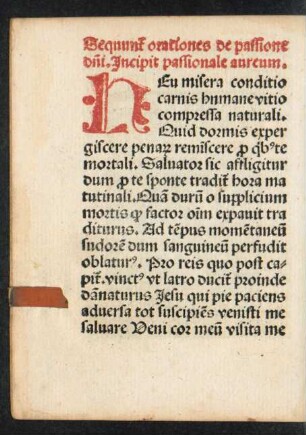 Sequunt᷑ orationes de passione
dn̄i. Incipit passionale aureum.
NEu misera conditio
carnis humane vitio
compressa naturali.
Quid dormis exper
giscere penaꝝ remīscere ꝓ qͥbꝰ te
mortali. Saluator sic affligitur
dum ꝓ te sponte tradit᷑ hora ma
tutinali. Quā durū o supplicium
mortis ꝙ factor oīm expauit tra
diturus. Ad tēpus momētaneū
sudorē dum sanguineū perfudit
oblaturꝰ. Pro reis quo post ca⸗
pit᷑. vinctꝰ vt latro ducit᷑ proinde
dānaturus Jesu qui pie paciens
aduersa tot suscipiēs venisti me
saluare Veni cor meū visita me